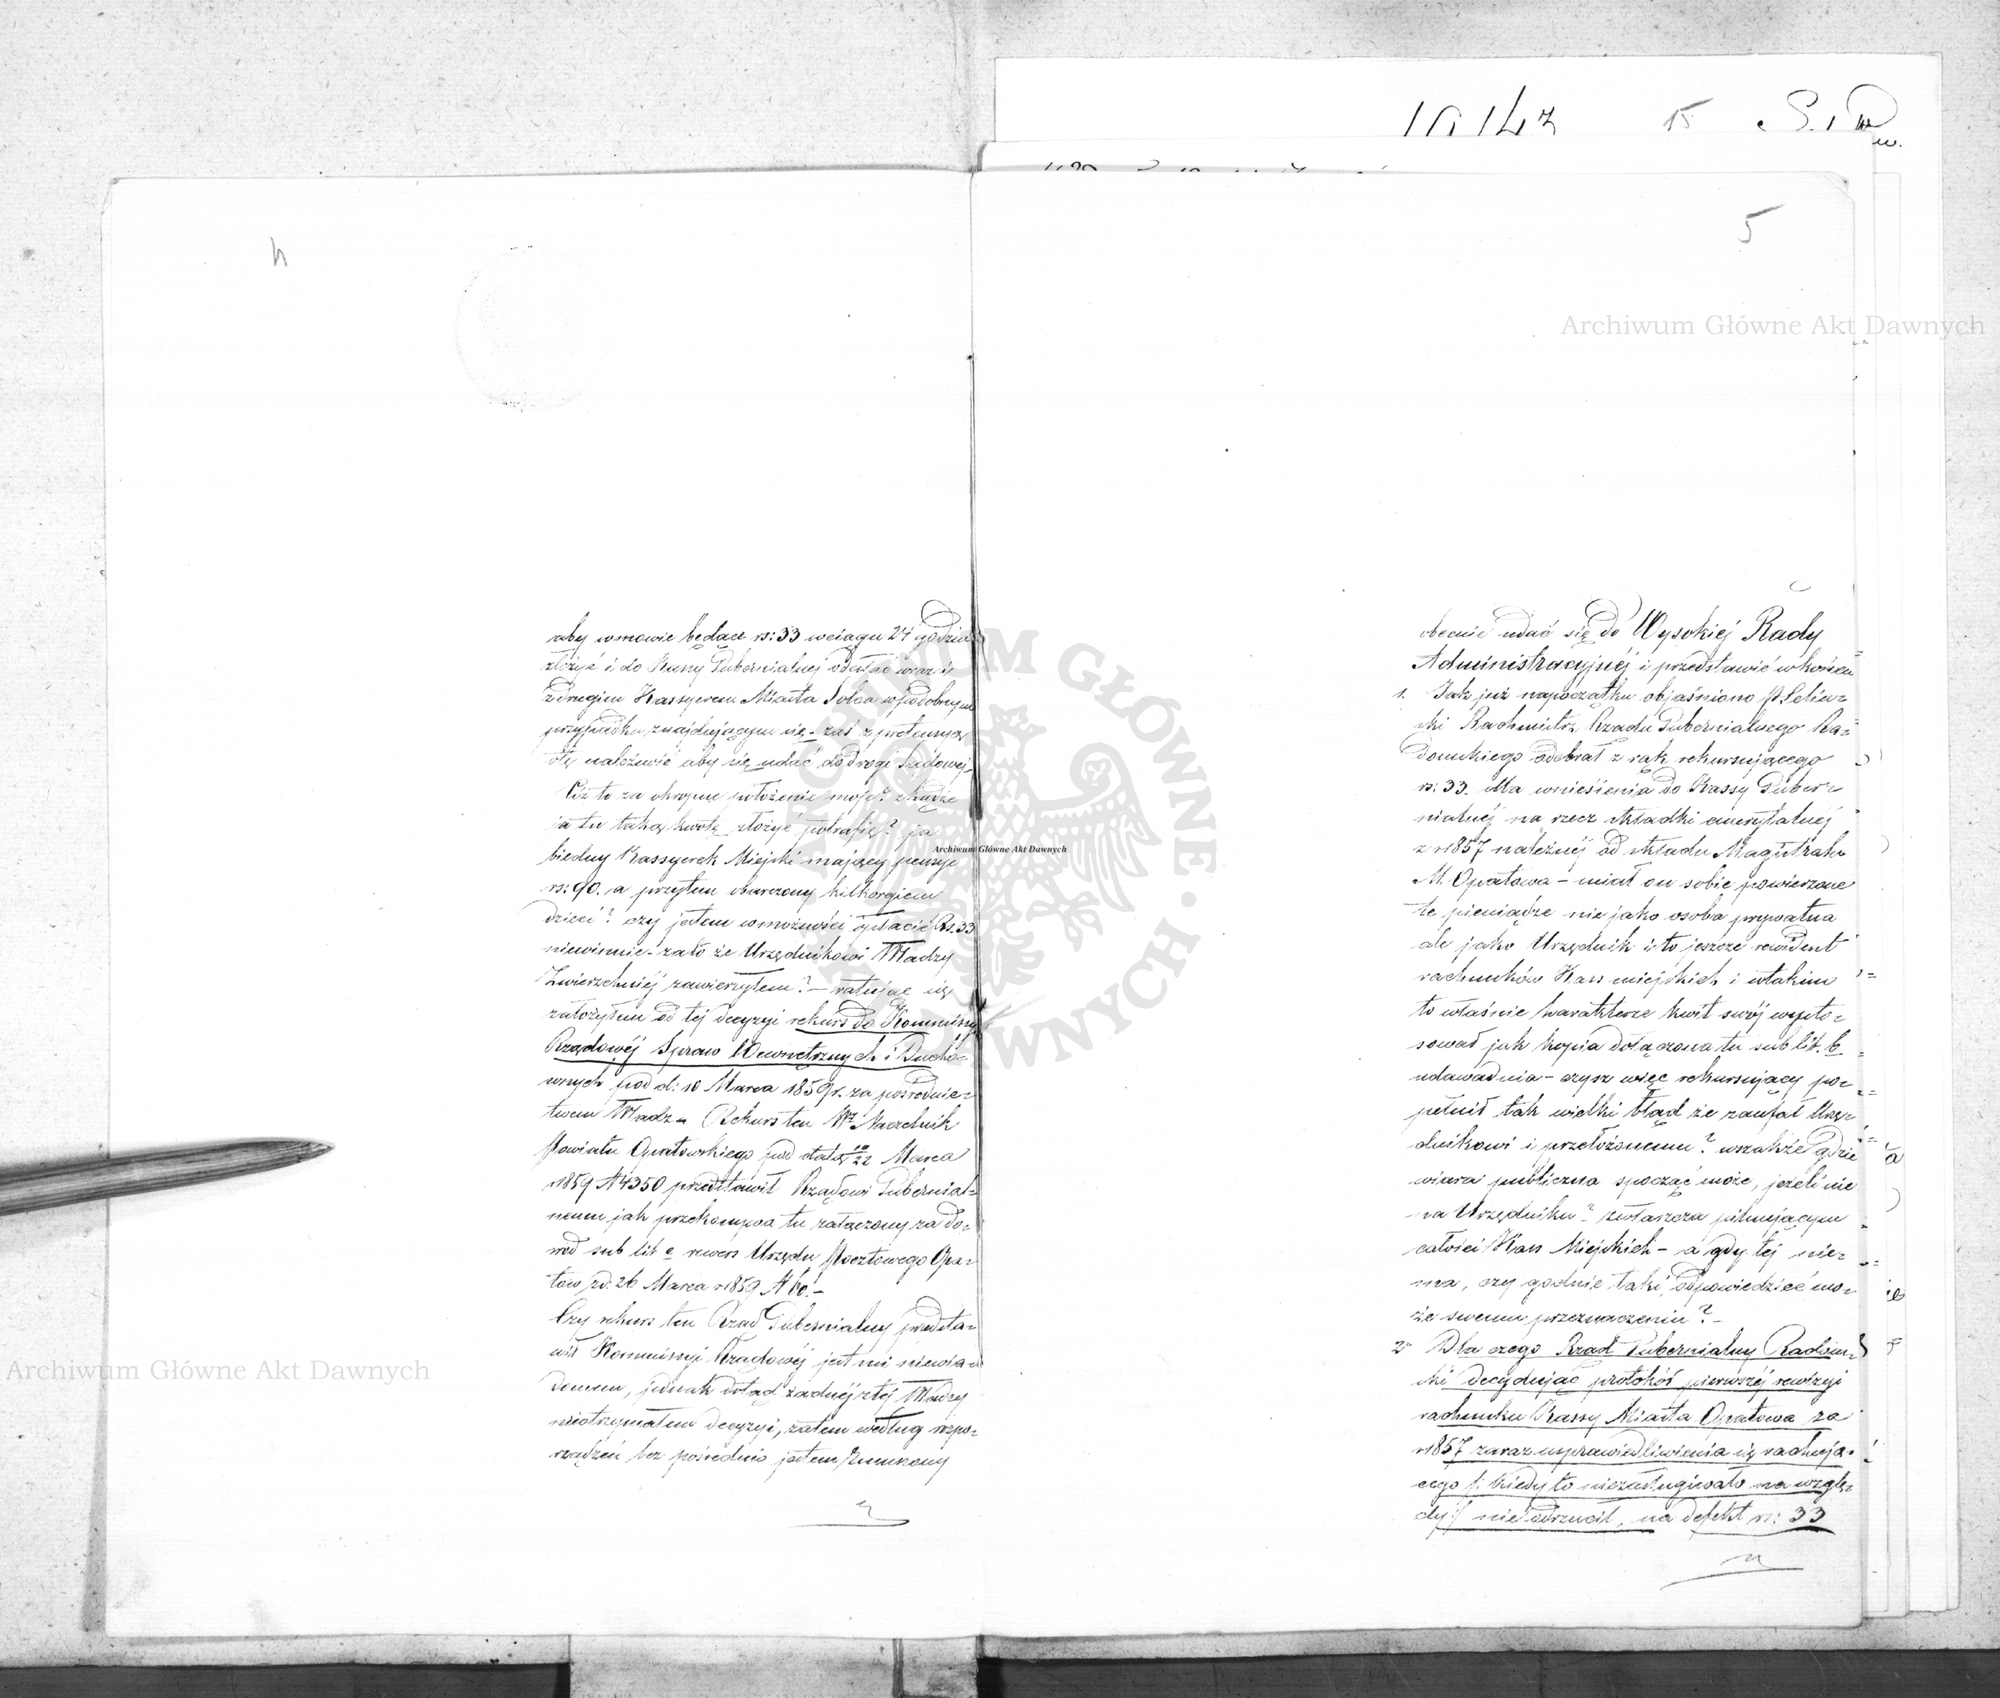 15
4
aby wmowie będące rs: 33 wciągu 24 godzin
złożyć i do Kassy Gubernialnej odesłać wraz
z drugim Kassyerem Miasta Solca w podobnym
przypadku znajdującym się – zaś z pretensyą
o tę należność aby się udać do drogi Sądowej –
Cóż to za okropne położenie moje? zkądże
ja tu taką kwotę złożyć potrafię? ja
biedny Kassyerek Miejski mający pensye
rs: 90. a przytem obarczony kilkorgiem
dzieci? czy jestem wmożności opłacić Rs. 33
niewinnie – zato że Urzędnikowi Władzy
Zwierzchniéj zawierzyłem? – ratując się
założyłem od tej decyzyi rekurs do Kommissyi
Rządowéj Spraw Wewnętrznych i Ducho-
wnych pod d: 10 Marca 1859 r. za pośrednic-
twem Władz – Rekurs ten Wż Naczelnik
Powiatu Opatowskiego pod datą 10/22 Marca
r 1859 N 4350 przedstawił Rządowi Gubernial-
nemu jak przekonywa tu załączony za do-
wod sub lit c rewers Urzędu Pocztowego Opa-
tow zd: 26 Marca r 1859 N 60. –
Czy rekurs ten Rząd Gubernialny przedsta-
wił Kommissyi Rządowéj jest mi niewia-
domem, jednak dotąd żadnéj z tej Władzy
nieotrzymałem decyzyi, zatem według rozpo-
rządzeń bez pośrednio jestem zmuszony
5
obecnie udać się do Wysokiej Rady
Administracyjnéj i przedstawić wkońcu
1. Jak już napoczątku objaśniono P.
ski Rachmistrz Rządu Gubernialnego Ra-
domskiego odebrał z rąk rekursującego
rs: 33. dla wniesienia do Kassy Guber-
nialnéj na rzecz składki emerytalnéj
z r 1857 należnéj od składu Magistratu
M. Opatowa – miał on sobie powierzone
te pieniądze nie jako osoba prywatna
ale jako Urzędnik i to jeszcze rewident
rachunków Kass miejskich i wtakim
to właśnie harakterze kwit swój wysto-
sował jak kopia dołączona tu sub lit. b.
udawadnia – czyż więc rekursujący po-
pełnił tak wielki błąd że zaufał Urzę-
dnikowi i przełożonemu? wszakże gdzie
wiara publiczna spocząć może, jeżeli nie
na Urzędniku? zwłaszcza pilnującym
całości Kass Miejskich – a gdy tej nie-
ma, czy godnie taki odpowiedzieć mo-
że swemu przeznaczeniu? –
2 Dla czego Rząd Gubernialny Radom-
ski decydując protokół pierwszéj rewizyi
rachunku Kassy Miasta Opatowa za
r 1857 zaraz usprawiedliwienia się rachują-
cego /: kiedy to niezasługiwało na wzglę-
dy :/ nie odrzucił, na defekt rs: 33
Archiwum Główne Akt Dawnych
Archiwum Główne Akt Dawnych
Archiwum Główne Akt Dawnych